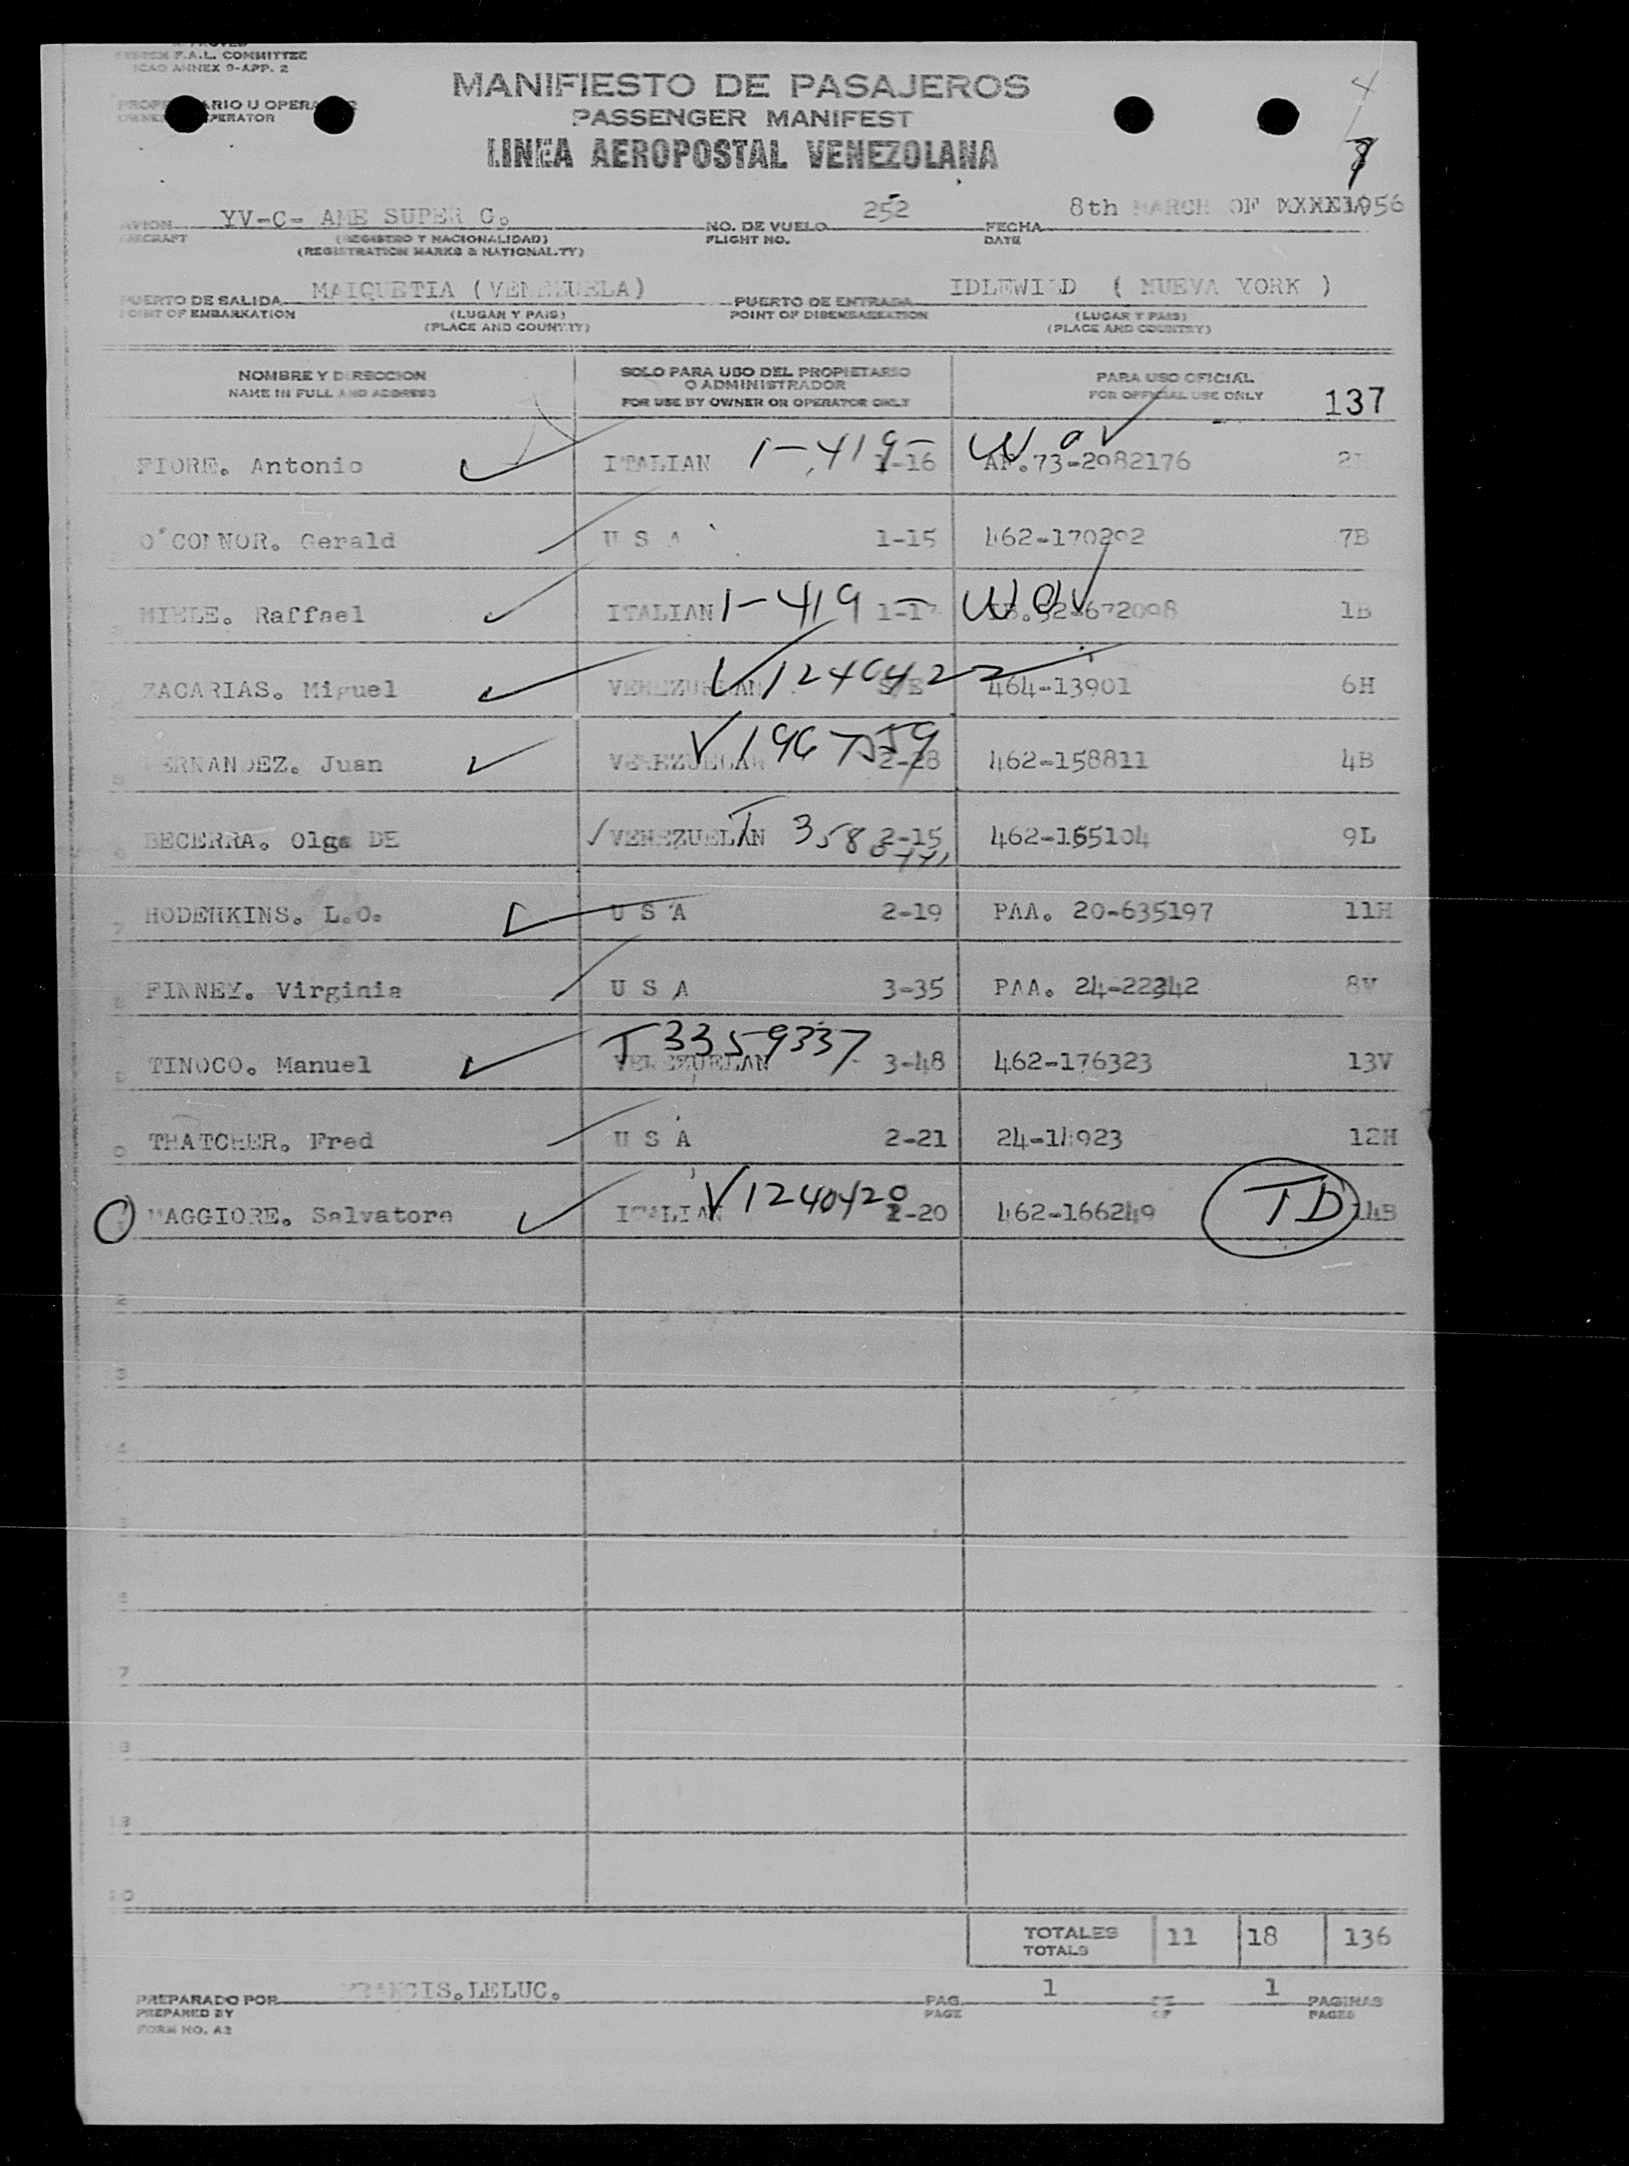 F.A.L. COMMITTEE
ICAO ANNEX 9-APP. 2
MANIFIESTO DE PASAJEROS
PASSENGER MANIFEST
LINEA AEROPOSTAL VENEZOLANA
4
OPERATOR
AVION YV-C- AME SUPER G. NO. DE VUELO 252 FECHA 8th MARCH OF 1956
AIRCRAFT (REGISTRO Y NACIONALIDAD) FLIGHT NO. DATE
(REGISTRATION MARKS & NATIONALITY)
PUERTO DE SALIDA MAIQUETIA (VENEZUELA) PUERTO DE ENTRADA IDLEWILD ( NUEVA YORK )
POINT OF EMBARKATION (LUGAR Y PAIS) POINT OF DISEMBARKATION (LUGAR Y PAIS)
(PLACE AND COUNTRY) (PLACE AND COUNTRY)
NOMBRE Y DIRECCION SOLO PARA USO DEL PROPIETARIO PARA USO OFICIAL
O ADMINISTRADOR
NAME IN FULL AND ADDRESS FOR USE BY OWNER OR OPERATOR ONLY FOR OFFICIAL USE ONLY 137
FIORE. Antonio ITALIAN 1-419- 1-16 AF.73-2982176
O'CONNOR. Gerald U S A 1-15 462-170292 7B
MIELE. Raffael ITALIAN 1-419- 1-17 1B
ZACARIAS. Miguel VENEZUELAN V1240422 464-13901 6H
HERNANDEZ. Juan VENEZUELAN V1967559 2-28 462-158811 4B
BECERRA. Olga DE VENEZUELAN T 358 2-15 462-165104 9L
HODEHKINS. L.O. U S A 2-19 PAA. 20-635197 11H
FINNEY. Virginia U S A 3-35 PAA. 24-22342 8V
TINOCO. Manuel VENEZUELAN T3359337 3-48 462-176323 13V
THATCHER. Fred U S A 2-21 24-14923 12H
MAGGIORE. Salvatore ITALIAN V1240420 2-20 462-166249 TD 14B
7
TOTALES 11 18 136
TOTALS
PREPARADO POR FRANCIS.LELUC. PAG. 1 DE 1 PAGINAS
PREPARED BY PAGE OF PAGES
FORM NO. A2